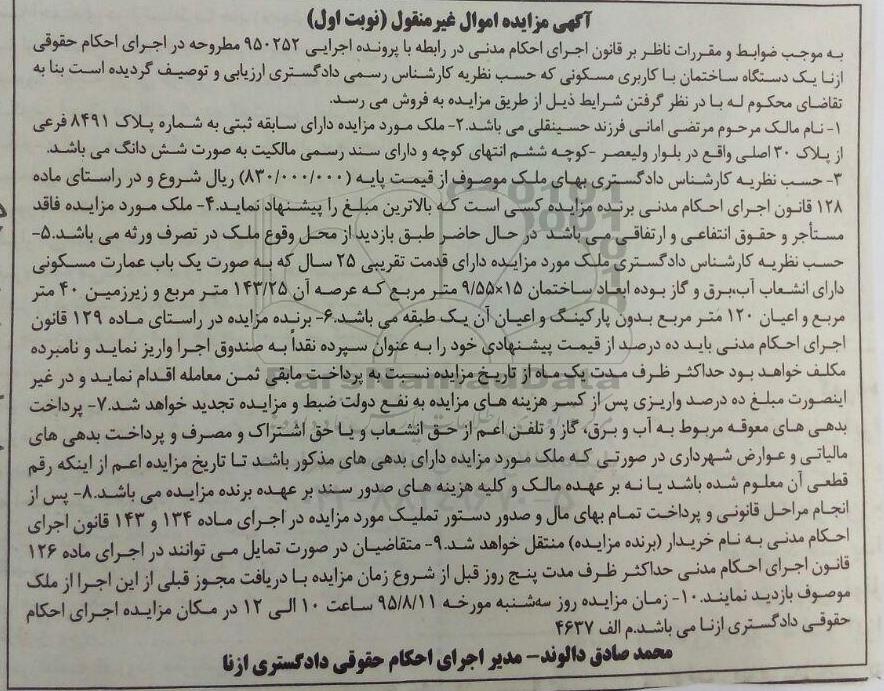 آگهی مزایده اموال غیر منقول (نوبت اول)
به موجب ضوابط و مقررات ناظر بر قانون اجرای احکام مدنی در رابطه با پرونده اجرایی ۹۵۰۲۵۲ مطروحه در اجرای احکام حقوقی
ازنا یک دستگاه ساختمان با کاربری مسکونی که حسب نظریه کارشناس رسمی دادگستری ارزیابی و توصیف گردیده است بنا به
تقاضای محکوم له با در نظر گرفتن شرایط ذیل از طریق مزایده به فروش می رسد.
۱- نام مالک مرحوم مرتضی امانی فرزند حسینقلی می باشد.۲- ملک مورد مزایده دارای سابقه ثبتی به شماره پلاک ۸۴۹۱ فرعی
از پلاک ۳۰ اصلی واقع در بلوار ولیعصر -کوچه ششم انتهای کوچه و دارای سند رسمی مالکیت به صورت شش دانگ می باشد.
۳- حسب نظریه کارشناس دادگستری بهای ملک موصوف از قیمت پایه (۸۳۰/۰۰۰/۰۰۰) ریال شروع و در راستای ماده
۱۲۸ قانون اجرای احکام مدنی برنده مزایده کسی است که بالاترین مبلغ را پیشنهاد نماید.۴- ملک مورد مزایده فاقد
مستأجر و حقوق انتفاعی و ارتفاقی می باشد در حال حاضر طبق بازدید از محل وقوع ملک در تصرف ورثه می باشد.۵-
حسب نظریه کارشناس دادگستری ملک مورد مزایده دارای قدمت تقریبی ۲۵ سال که به صورت یک باب عمارت مسکونی
دارای انشعاب آب،برق و گاز بوده ابعاد ساختمان ۱۵×۹/۵۵ متر مربع که عرصه آن ۱۴۳/۲۵ متر مربع و زیرزمین ۴۰ متر
مربع و اعیان ۱۲۰ متر مربع بدون پارکینگ و اعیان آن یک طبقه می باشد.۶- برنده مزایده در راستای ماده ۱۲۹ قانون
اجرای احکام مدنی باید ده درصد از قیمت پیشنهادی خود را به عنوان سپرده نقداً به صندوق اجرا واریز نماید و نامبرده
مکلف خواهد بود حداکثر ظرف مدت یک ماه از تاریخ مزایده نسبت به پرداخت مابقی ثمن معامله اقدام نماید و در غیر
اینصورت مبلغ ده درصد واریزی پس از کسر هزینه های مزایده به نفع دولت ضبط و مزایده تجدید خواهد شد.۷- پرداخت
بدهی های معوقه مربوط به آب و برق، گاز و تلفن اعم از حق انشعاب و یا حق اشتراک و مصرف و پرداخت بدهی های
مالیاتی و عوارض شهرداری در صورتی که ملک مورد مزایده دارای بدهی های مذکور باشد تا تاریخ مزایده اعم از اینکه رقم
قطعی آن معلوم شده باشد یا نه بر عهده مالک و کلیه هزینه های صدور سند بر عهده برنده مزایده می باشد.۸- پس از
انجام مراحل قانونی و پرداخت تمام بهای مال و صدور دستور تملیک مورد مزایده در اجرای ماده ۱۳۴ و ۱۴۳ قانون اجرای
احکام مدنی به نام خریدار (برنده مزایده) منتقل خواهد شد.۹- متقاضیان در صورت تمایل می توانند در اجرای ماده ۱۲۶
قانون اجرای احکام مدنی حداکثر ظرف مدت پنج روز قبل از شروع زمان مزایده با دریافت مجوز قبلی از این اجرا از ملک
موصوف بازدید نمایند.۱۰- زمان مزایده روز سه‌شنبه مورخه ۹۵/۸/۱۱ ساعت ۱۰ الی ۱۲ در مکان مزایده اجرای احکام
حقوقی دادگستری ازنا می باشد.م الف ۴۶۳۷
محمد صادق دالوند- مدیر اجرای احکام حقوقی دادگستری ازنا
ParsNamadData